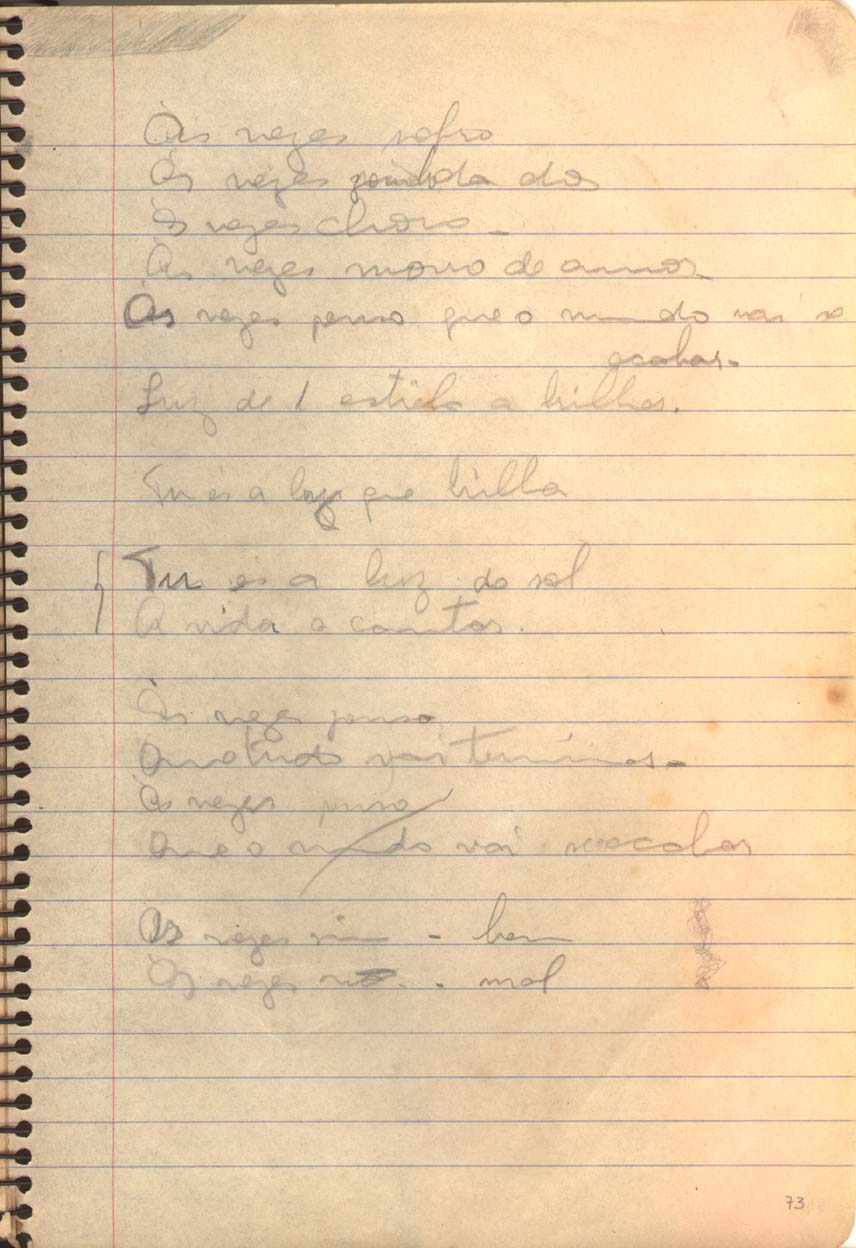 Às vezes sofro
Às vezes da dor
Às vezes choro -
Às vezes morro de amor -
Às vezes penso que o mundo vai se
acabar -
Luz de 1 estrela a brilhar.
Tu és a luz que brilha
Tu és a luz do sol
A vida a cantar.
Às vezes penso
Que tudo vai terminar -
Às vezes penso
Que o mundo vai se acabar
Às vezes sim - bem
Às vezes - mal
73